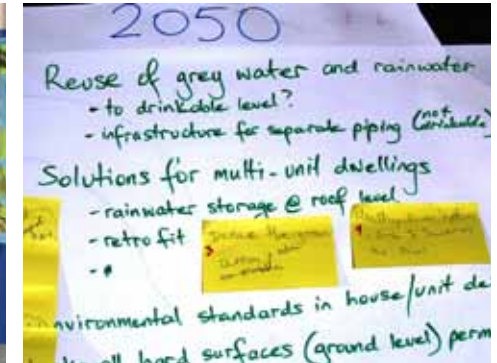 2050
Reuse of grey water and rainwater
- to drinkable level?
- infrastructure for separate piping (not drinkable)
Solutions for multi-unit dwellings
- rainwater storage @ roof level
- retro fit
-
nvironmental standards in house/unit de
all hard surfaces (ground level) perm